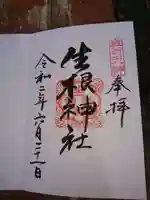 奉拝
生根神社
令和二年六月二十一日